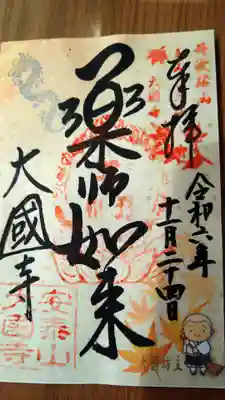 奉拝
令和六年
十一月二十四日
薬師如来
大國寺
安泰山
大国寺